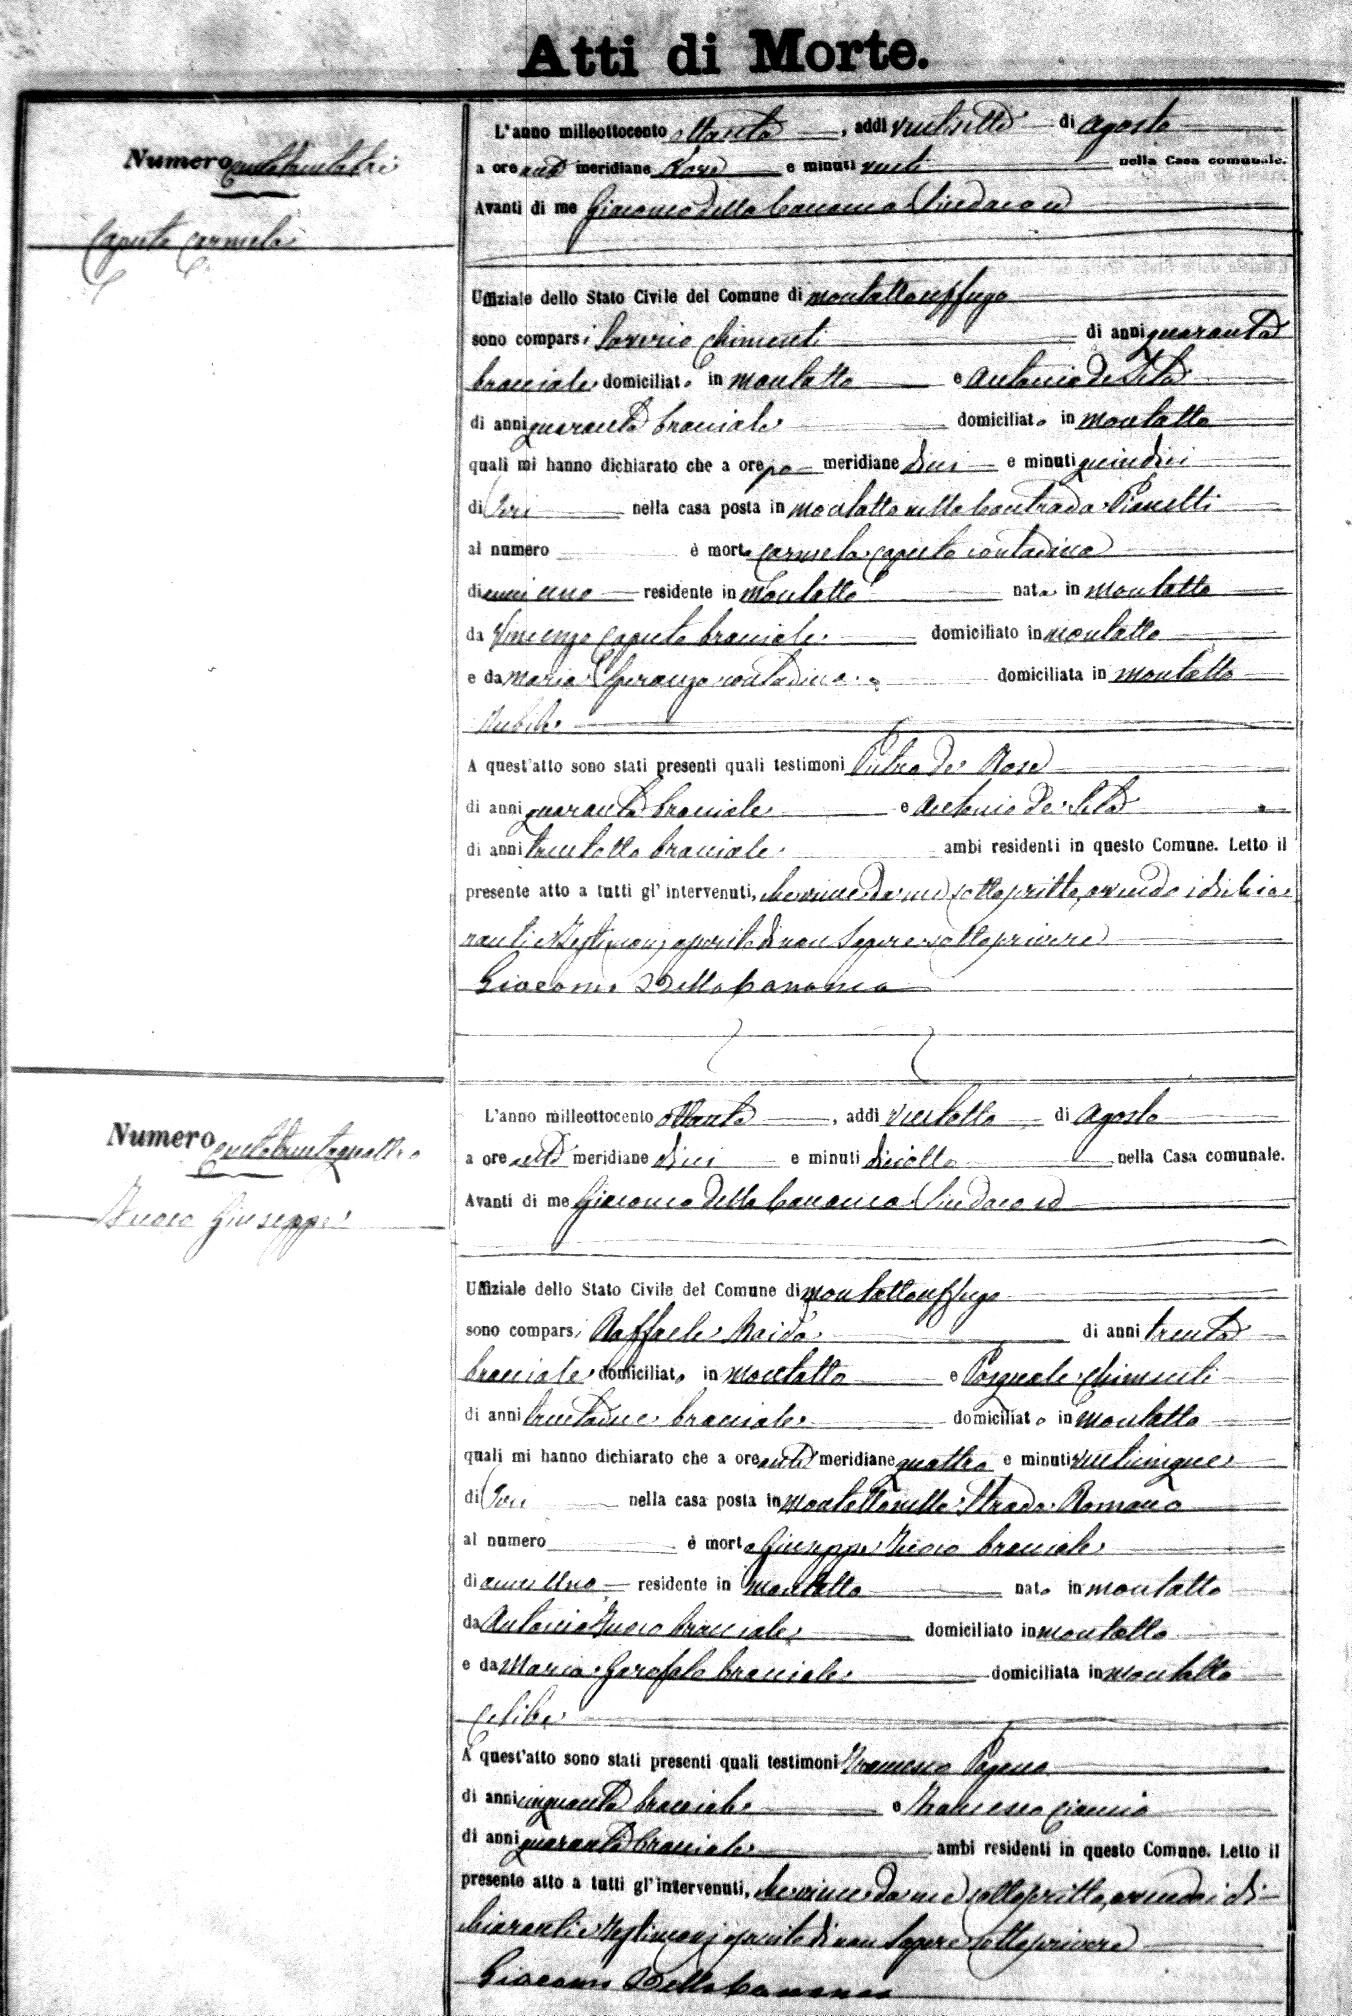 Atti di Morte.
Numero centotrentatre
Caputo Carmela
L'anno milleottocento ottanta, addì ventisette di Agosto
a ore anti meridiane Nove e minuti venti nella Casa comunale.
Avanti di me Giacomo Della Cananea Sindaco ed
Uffiziale dello Stato Civile del Comune di Montalto Uffugo
sono comparsi Saverio Chimenti di anni quaranta
bracciale domiciliato in Montalto e Antonio De Seta
di anni quaranta bracciale domiciliato in Montalto
quali mi hanno dichiarato che a ore po meridiane dieci e minuti quindici
di Ieri nella casa posta in Montalto nella Contrada Pianetti
al numero è morta Carmela Caputo contadina
di anni uno residente in Montalto nata in Montalto
da Vincenzo Caputo bracciale domiciliato in Montalto
e da Maria Speranza contadina domiciliata in Montalto
Nubile
A quest'atto sono stati presenti quali testimoni Pietro De Rose
di anni quaranta bracciale e Antonio De Seta
di anni trentotto bracciale ambi residenti in questo Comune. Letto il
presente atto a tutti gl'intervenuti, da me sottoscritto, avendo i dichia-
ranti e Testimonj asserito di non Sapere sottoscrivere
Giacomo Della Cananea
Numero centotrentaquattro
Giuseppe
L'anno milleottocento ottanta, addì ventotto di Agosto
a ore anti meridiane dieci e minuti diciotto nella Casa comunale.
Avanti di me Giacomo Della Cananea Sindaco ed
Uffiziale dello Stato Civile del Comune di Montalto Uffugo
sono comparsi Raffaele Naida di anni trenta
bracciale domiciliato in Montalto e Pasquale Chimenti
di anni trentadue bracciale domiciliato in Montalto
quali mi hanno dichiarato che a ore anti meridiane quattro e minuti venticinque
di Ieri nella casa posta in Montalto nella Strada Romano
al numero è morto Giuseppe bracciale
di anni Uno residente in Montalto nato in Montalto
da Antonio bracciale domiciliato in Montalto
e da Maria Garofalo bracciale domiciliata in Montalto
Celibe
A quest'atto sono stati presenti quali testimoni Francesco Pagano
di anni cinquanta bracciale e Francesco
di anni quaranta bracciale ambi residenti in questo Comune. Letto il
presente atto a tutti gl'intervenuti, da me sottoscritto, avendo i di-
chiaranti e Testimonj asserito di non Sapere sottoscrivere
Giacomo Della Cananea